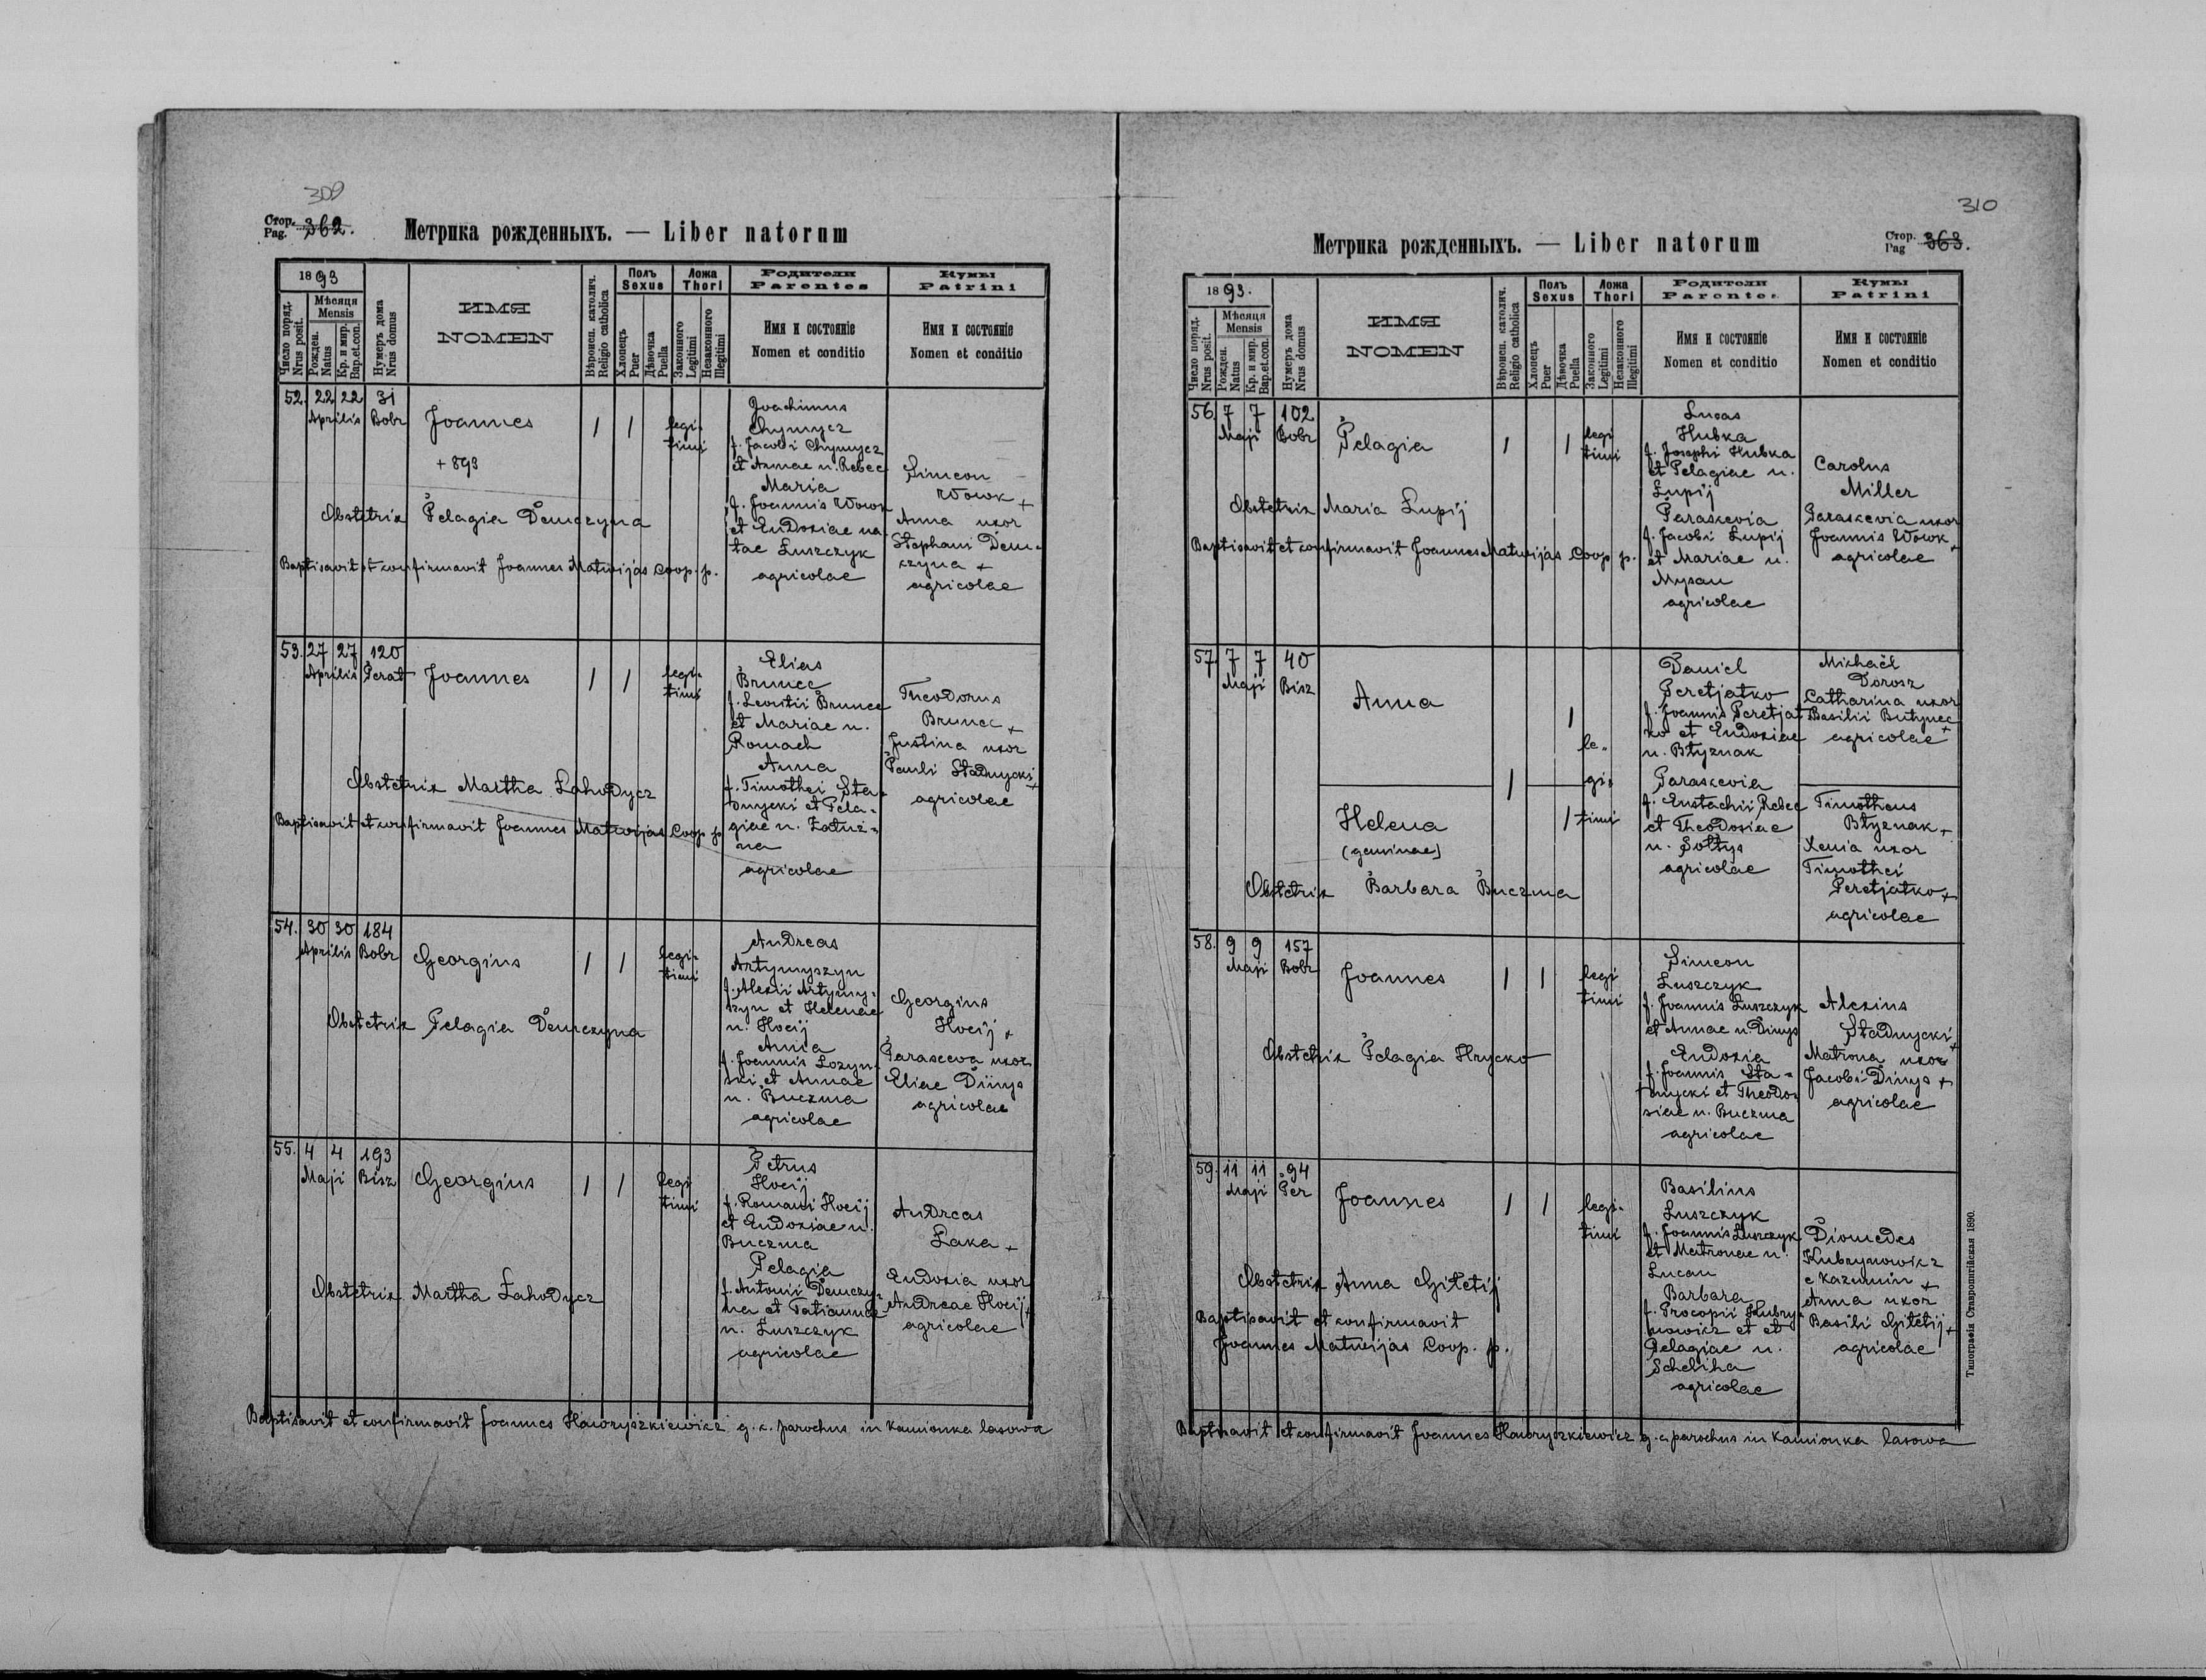 309
Стор. Pag. 362.
Метрика рожденныхъ. — Liber natorum
1893
Число поряд. Nrus posit.
Мѣсяця Mensis
Рожден. Natus
Кр. и мир. Bap.et.con.
Нумеръ дома Nrus domus
ИМЯ
NOMEN
Вѣроиспов. католич. Religio catholica
Полъ Sexus
Хлопецъ Puer
Дѣвочка Puella
Ложа Thori
Законного Legitimi
Незаконного Illegitimi
Родители
Parentes
Имя и состояніе
Nomen et conditio
Кумы
Patrini
Имя и состояніе
Nomen et conditio
52. 22 22 31
Aprilis Bobr
Joannes
+ 893
1 1
legi-
timi
Joachimus
Chymycz
f. Jacobi Chymycz
et Annae n. Rebec
Maria
f. Joannis Wowk
et Eudoxiae na-
tae Łuszczyk
agricolae
Simeon
Wowk +
Anna uxor
Stephani Dem-
czyna +
agricolae
Obstetrix Pelagia Demczyna
Baptisavit et confirmavit Joannes Matwijas coop. p.
53. 27 27 120
Aprilis Perat
Joannes
1 1
legi-
timi
Elias
Brunec
f. Leontii Brunec
et Mariae n.
Romach
Anna
f. Timothei Sta-
dnycki et Pela-
giae n. Łatuz-
na
agricolae
Theodorus
Brunec +
Justina uxor
Pauli Stadnycki +
agricolae
Obstetrix Martha Łahodycz
Baptisavit et confirmavit Joannes Matwijas Coop p
54. 30 30 184
Aprilis Bobr
Georgius
1 1
legi-
timi
Andreas
Artymyszyn
f. Alexii Artymy-
szyn et Helenae
n. Hocij
Anna
f. Joannis Lozyn-
ski et Annae
n. Buczma
agricolae
Georgius
Hocij +
Parasceva uxor
Eliae Dinys
agricolae
Obstetrix Pelagia Demczyna
55. 4 4 193
Maji Bisz
Georgius
1 1
legi
timi
Petrus
Hocij
f. Romani Hocij
et Eudoxiae n.
Buczma
Pelagia
f. Antonii Demczy-
na et Tatiannae
n. Łuszczyk
agricolae
Andreas
Łaka +
Eudoxia uxor
Andreae Hocij +
agricolae
Obstetrix Martha Łahodycz
Baptisavit et confirmavit Joannes Hawryszkiewicz g. c. parochus in Kamionka lasowa
310
Метрика рожденныхъ. — Liber natorum
Стор. Pag 363.
1893.
Число поряд. Nrus posit.
Мѣсяця Mensis
Рожден. Natus
Кр. и мир. Bap.et.con.
Нумеръ дома Nrus domus
ИМЯ
NOMEN
Вѣроиспов. католич. Religio catholica
Полъ Sexus
Хлопецъ Puer
Дѣвочка Puella
Ложа Thori
Законного Legitimi
Незаконного Illegitimi
Родители
Parentes
Имя и состояніе
Nomen et conditio
Кумы
Patrini
Имя и состояніе
Nomen et conditio
56. 7 7 102
Maji Bobr
Pelagia
1 1
legi
timi
Lucas
Hubka
f. Josephi Hubka
et Pelagiae n.
Łupij
Paraskevia
f. Jacobi Łupij
et Mariae n.
Mysan
agricolae
Carolus
Miller
Paraskevia uxor
Joannis Wowk +
agricolae
Obstetrix Maria Łupij
Baptisavit et confirmavit Joannes Matwijas Coop p.
57. 7 7 40
Maji Bisz
Anna
1
le-
gi-
timi
Helena
(geminae)
1 1
Daniel
Peretjatko
f. Joannis Peretjat
ko et Eudoxiae
n. Błyznak
Paraskevia
f. Eustachii Rebec
et Theodosiae
n. Sołtys
agricolae
Michaël
Dorosz
Catharina uxor
Basilii Butynec +
agricolae
Timotheus
Błyznak +
Xenia uxor
Timothei
Peretjatko +
agricolae
Obstetrix Barbara Buczma
58. 9 9 157
Maji Bobr
Joannes
1 1
legi
timi
Simeon
Łuszczyk
f. Joannis Łuszczyk
et Annae n. Dinys
Eudoxia
f. Joannis Sta-
dnycki et Theodo-
siae n. Buczma
agricolae
Alexius
Stadnycki +
Matrona uxor
Jacobi Dinys +
agricolae
Obstetrix Pelagia Hrycko
59. 11 11 94
Maji Per
Joannes
1 1
legi-
timi
Basilius
Łuszczyk
f. Joannis Łuszczyk
et Matronae n.
Lucan
Barbara
f. Procopii Kubry-
nowicz et et
Pelagiae n.
Scheliha
agricolae
Diomedes
Kubrynowicz
e Kazumin +
Anna uxor
Basili Giletij +
agricolae
Obstetrix Anna Giletij
Baptisavit et confirmavit
Joannes Matwijas Coop. p.
Baptisavit et confirmavit Joannes Hawryszkiewicz g. c parochus in Kamionka lasowa
Типографія Ставропигійская 1890.